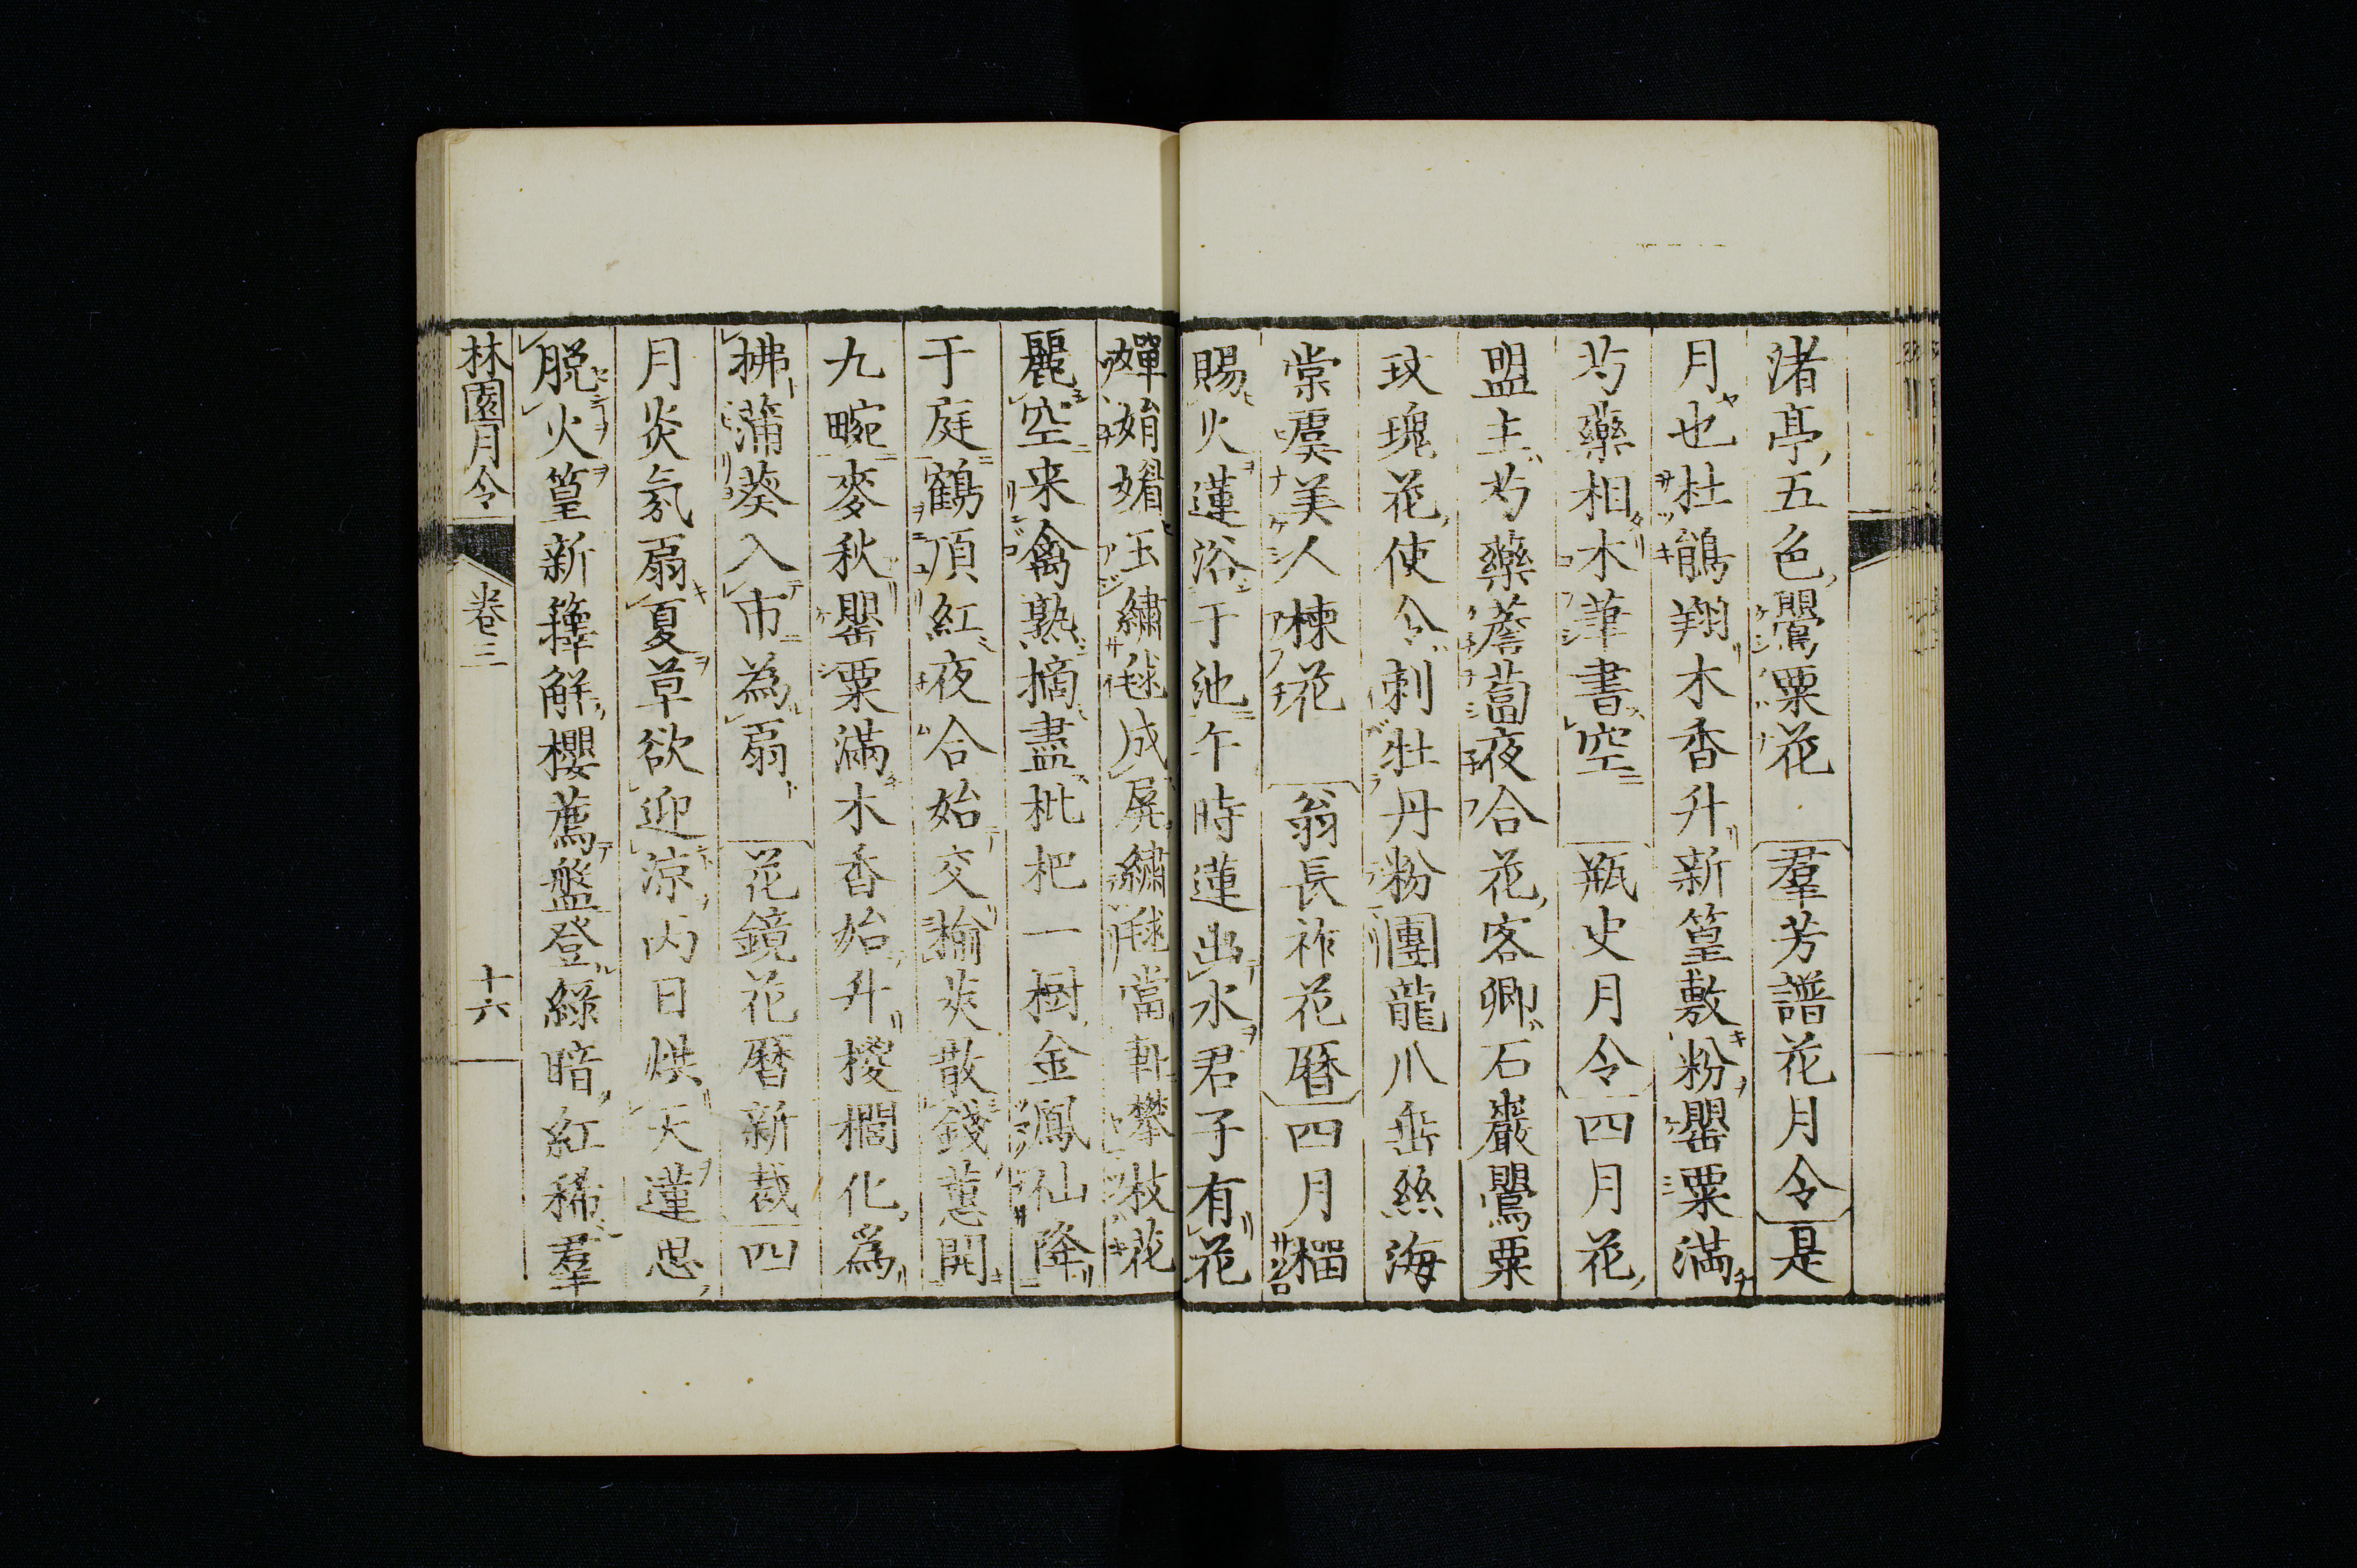 渚亭五色鸎粟花 羣芳譜花月令是
月也杜鵑翔木香升新篁敷粉罌粟滿
芍藥相木筆書空 瓶史月令四月花
盟主芍藥薝蔔夜合花客卿石巖鸎粟
玫瑰花使令刺牡丹粉團龍爪垂絲海
棠虞美人楝花 翁長祚花曆四月榴
賜火蓮浴于池午時蓮出水君子有花
嬋娟媚玉繡毬成屏繡毬當軒攀枝花
麗空来禽熟摘盡枇杷一樹金鳳仙降
于庭鶴頂紅夜合始交揄莢散錢蕙開
九畹麥秋罌粟滿木香始升椶櫚化為
拂蒲葵入市為扇 花鏡花曆新裁四
月炎氛扇夏草欲迎涼丙日烘天蓮思
脱火篁新籜解櫻薦盤登綠暗紅稀羣
林園月令 卷三 十六